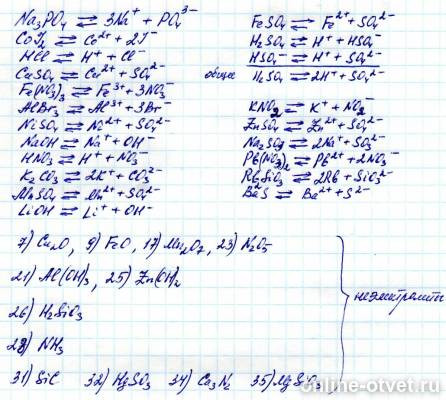 Na₃PO₄ ⇄ 3Na⁺ + PO₄³⁻
CoI₂ ⇄ Co²⁺ + 2I⁻
HCl ⇄ H⁺ + Cl⁻
CuSO₄ ⇄ Cu²⁺ + SO₄²⁻
Fe(NO₃)₃ ⇄ Fe³⁺ + 3NO₃⁻
AlBr₃ ⇄ Al³⁺ + 3Br⁻
NiSO₄ ⇄ Ni²⁺ + SO₄²⁻
NaOH ⇄ Na⁺ + OH⁻
HNO₃ ⇄ H⁺ + NO₃⁻
K₂CO₃ ⇄ 2K⁺ + CO₃²⁻
MnSO₄ ⇄ Mn²⁺ + SO₄²⁻
LiOH ⇄ Li⁺ + OH⁻
FeSO₄ ⇄ Fe²⁺ + SO₄²⁻
H₂SO₄ ⇄ H⁺ + HSO₄⁻
HSO₄⁻ ⇄ H⁺ + SO₄²⁻
общее H₂SO₄ ⇄ 2H⁺ + SO₄²⁻
KNO₂ ⇄ K⁺ + NO₂⁻
ZnSO₄ ⇄ Zn²⁺ + SO₄²⁻
Na₂SO₃ ⇄ 2Na⁺ + SO₃²⁻
Pb(NO₃)₂ ⇄ Pb²⁺ + 2NO₃⁻
Rb₂SiO₃ ⇄ 2Rb + SiO₃²⁻
BaS ⇄ Ba²⁺ + S²⁻
7) Cu₂O, 9) FeO, 17) Mn₂O₇, 23) N₂O₅
21) Al(OH)₃, 25) Zn(OH)₂
26) H₂SiO₃
28) NH₃
31) SiC 32) HgSO₃ 34) Ca₃N₂ 35) MgSiO₃
неэлектролиты
online-otvet.ru